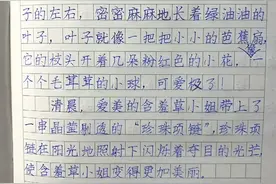 子的左右，密密麻麻地长着绿油油的
叶子，叶子就像一把把小小的芭蕉扇，
它的枝头开着几朵粉红色的小花，一
个个毛茸茸的小球，可爱极了！
清晨，爱美的含羞草小姐带上了
一串晶莹剔透的“珍珠项链”，珍珠项
链在阳光地照射下闪烁着夺目的光芒，
使含羞草小姐变得更加美丽。